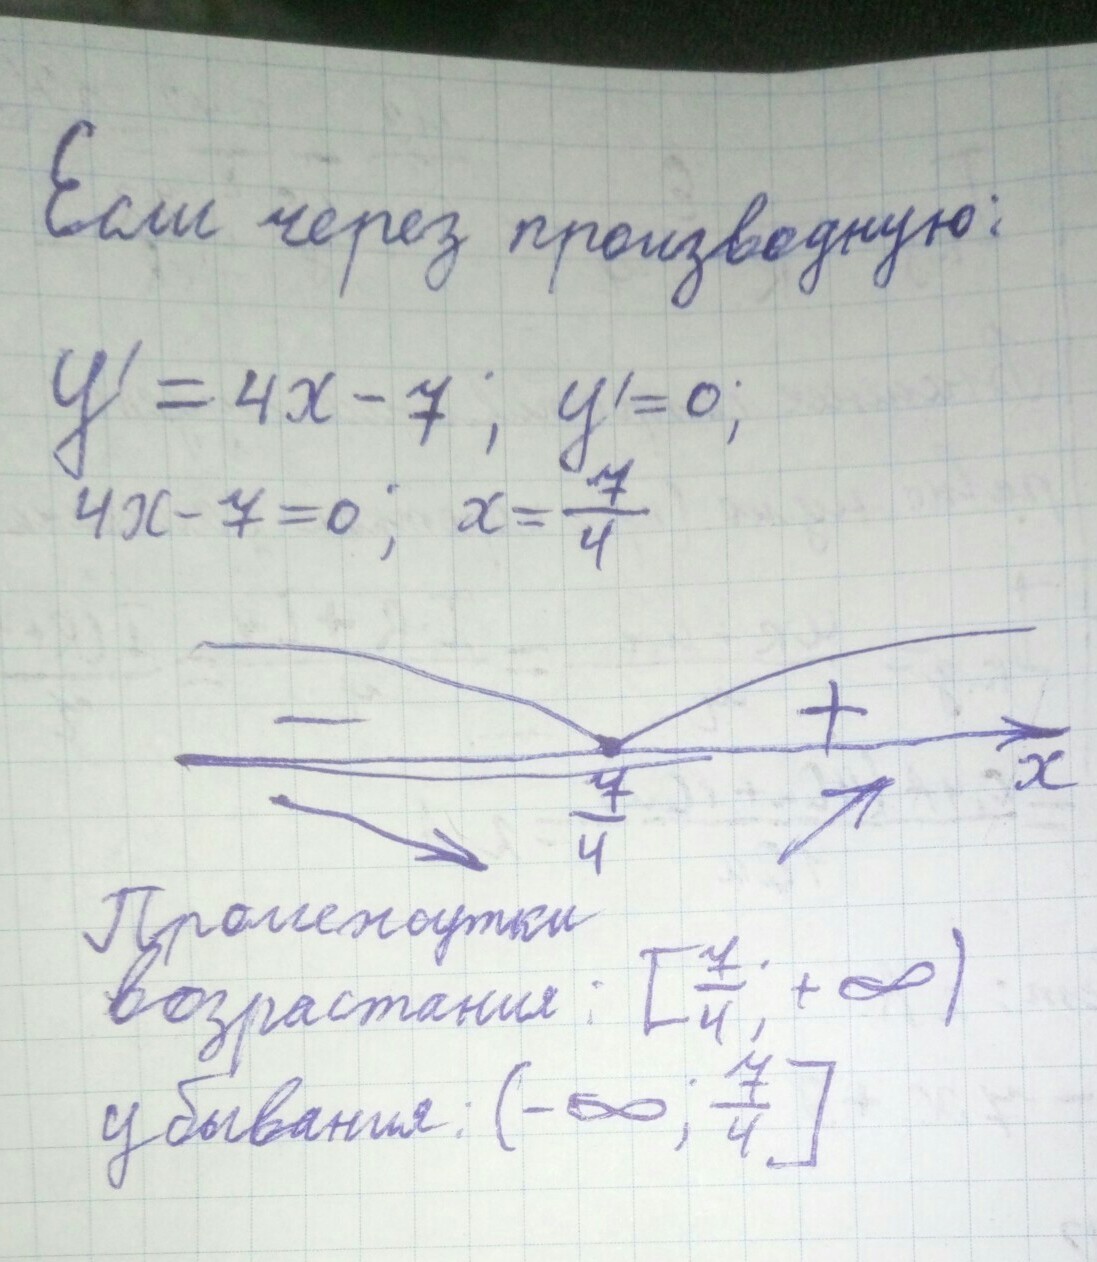 Если через производную:
y' = 4x - 7; y' = 0;
4x - 7 = 0; x = 7/4
− +
7/4 x
Промежутки
возрастания: [7/4; +∞)
убывания: (-∞; 7/4]